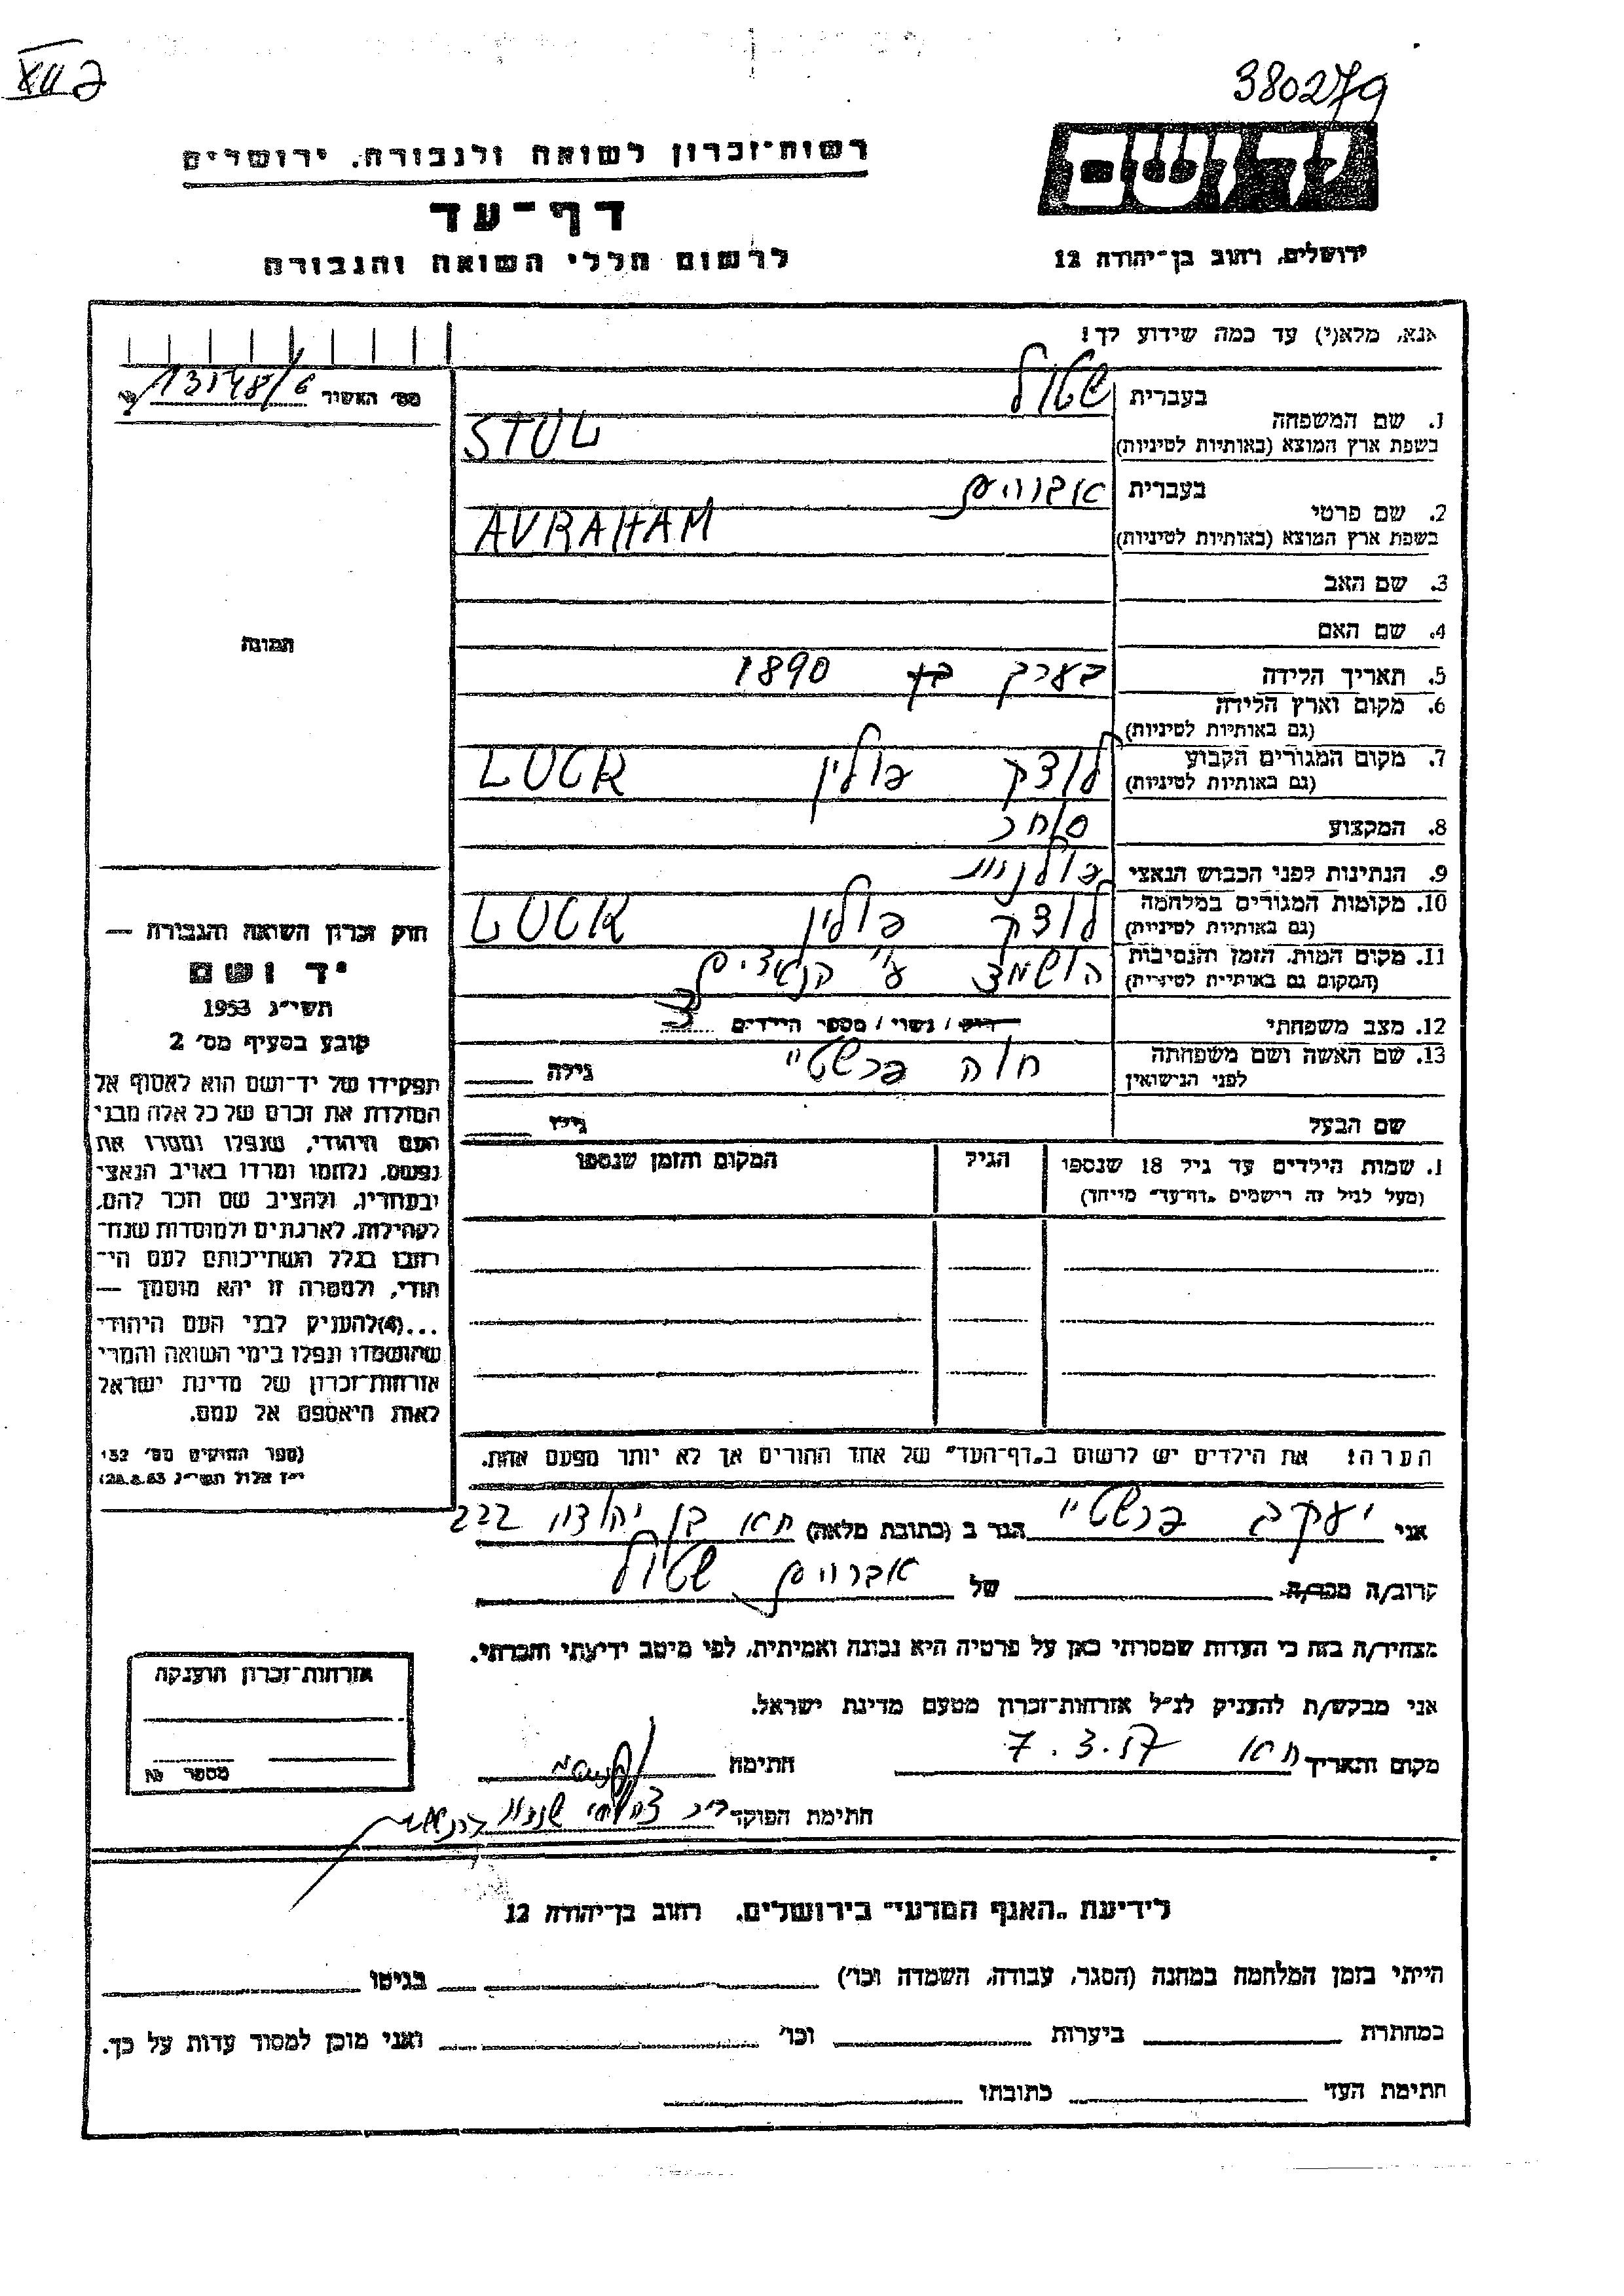 XII ק
380279
יד ושם
רשות־זכרון לשואה ולגבורה, ירושלים
דף־עד
לרשום חללי השואה והגבורה
ירושלים, רחוב בן־יהודה 12
אנא, מלא(י) עד כמה שידוע לך!
מס׳ האשיר
1. שם המשפחה
בעברית שטול
בשפת ארץ המוצא (באותיות לטיניות) STUL
2. שם פרטי
בעברית אברהם
בשפת ארץ המוצא (באותיות לטיניות) AVRAHAM
3. שם האב
4. שם האם
5. תאריך הלידה בערך בן 1890
6. מקום וארץ הלידה
(גם באותיות לטיניות)
7. מקום המגורים הקבוע לוצק פולין LUCK
(גם באותיות לטיניות)
8. המקצוע סוחר
9. הנתינות לפני הכבוש הנאצי פולנית
10. מקומות המגורים במלחמה לוצק פולין LUCK
(גם באותיות לטיניות)
11. מקום המות, הזמן והנסיבות הושמד ע״י הנאצים
(המקום גם באותיות לטיניות)
12. מצב משפחתי רווק / נשוי / מספר הילדים 3
13. שם האשה ושם משפחתה חוה גילה
לפני הנישואין
שם הבעל גילו
1. שמות הילדים עד גיל 18 שנספו הגיל המקום והזמן שנספו
(מעל לגיל זה רישמים „דף־עד" מייחד)
הערה! את הילדים יש לרשום ב„דף־העד" של אחד ההורים אך לא יותר מפעם אחת.
תמונה
חוק זכרון השואה והגבורה —
יד ושם
תשי״ג 1953
קובע בסעיף מס׳ 2
תפקידו של יד־ושם הוא לאסוף אל
המולדת את זכרם של כל אלה מבני
העם היהודי, שנפלו ומסרו את
נפשם, נלחמו ומרדו באויב הנאצי
ובעוזריו, ולהציב שם וזכר להם,
לקהילות, לארגונים ולמוסדות שנח־
רבו בגלל השתייכותם לעם הי־
הודי, ולמטרה זו יהא מוסמך —
...(4)להעניק לבני העם היהודי
שהושמדו ונפלו בימי השואה והמרי
אזרחות־זכרון של מדינת ישראל
לאות היאספם אל עמם.
(ספר החוקים מס׳ 132
י״ז אלול תשי״ג 28.8.53)
אני יעקב הגר ב (כתובת מלאה) ת״א בן יהודה 222
קרוב/ה מכר/ה של אברהם שטול
מצהיר/ה בזה כי העדות שמסרתי כאן על פרטיה היא נכונה ואמיתית, לפי מיטב ידיעתי והכרתי.
אני מבקש/ת להעניק לנ״ל אזרחות־זכרון מטעם מדינת ישראל.
מקום ותאריך ת״א 7.3.57 חתימה
חתימת הפוקד
אזרחות־זכרון הוענקה
מספר №
לידיעת „האגף המדעי" בירושלים, רחוב בן־יהודה 12
הייתי בזמן המלחמה במחנה (הסגר, עבודה, השמדה וכו׳) בגיטו
במחתרת ביערות וכו׳ ואני מוכן למסור עדות על כך.
חתימת העד כתובתו